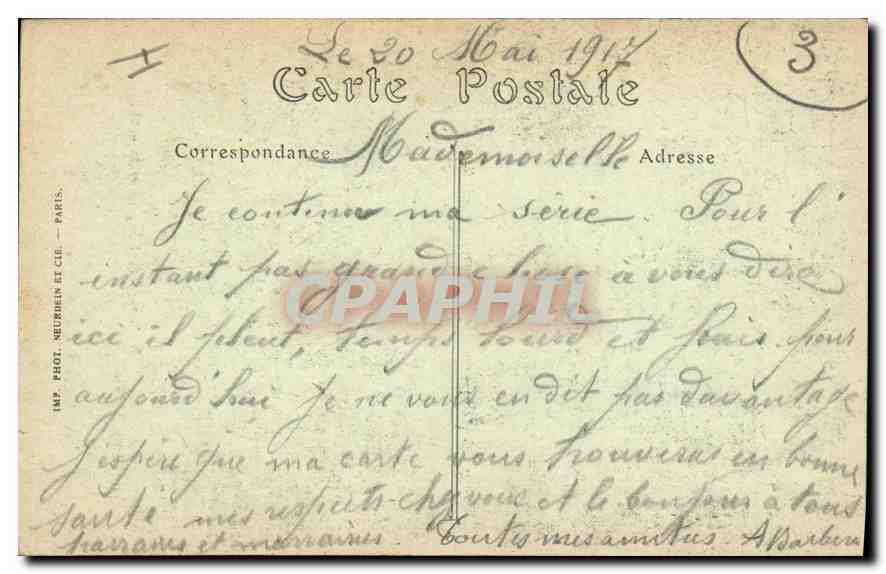 Le 20 Mai 1917
3
Carte Postale
Correspondance Mademoiselle Adresse
Je continue ma série. Pour l'
instant pas grand chose à vous dire
ici il pleut, temps lourd et frais pour
aujourd'hui Je ne vous en dit pas davantage
J'espère que ma carte vous trouveras en bonne
santé mes respects chez vous et le bonjour à tous
parrains et marraines. Toutes mes amitiés. A Barbera
IMP. PHOT. NEURDEIN ET CIE. — PARIS.
CPAPHIL